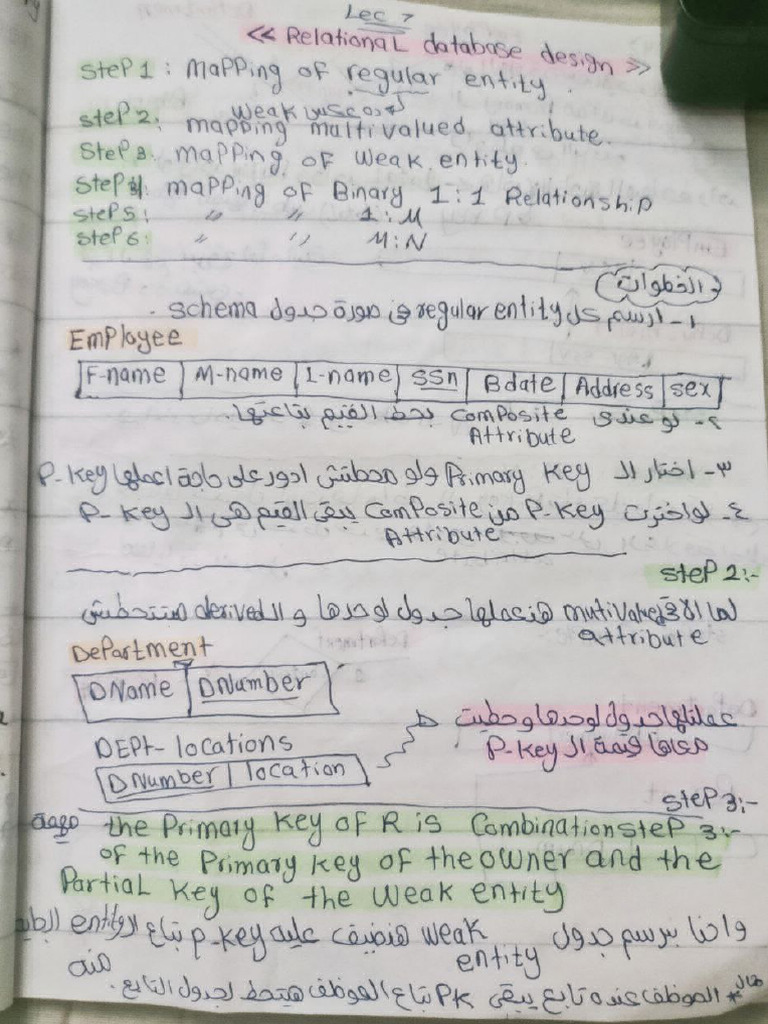 Lec 7
<< Relational database design >>
steP 1 : mapping of regular entity.
ده عكس weak
steP 2: mapping multivalued attribute.
SteP 3: mapping of weak entity.
SteP 4: mapping of Binary 1:1 Relationship
steP 5: " " 1:M
steP 6: " " M:N
الخطوات
1- ارسم كل regular entity في صورة جدول schema.
Employee
F-name | M-name | L-name | SSn | Bdate | Address | sex
٢- لو عندى composite Attribute بحط القيم بتاعتها.
٣- اختار الـ Primary key ولو محطتش ادور على حاجة اعملها P-key
٤- لو اخترت P-key من composite Attribute يبقى القيم هى الـ P-key
steP 2:-
لما الاقى mutivalue attribute هنعملها جدول لوحدها و الـ derived مبتتحطش
Department
DName | DNumber
عملتلها جدول لوحدها وحطيت
معاها قيمة الـ P-key
DEPt-locations
DNumber | location
steP 3:-
مهمة the Primary key of R is Combination steP 3:-
of the Primary key of the owner and the
Partial key of the weak entity
واحنا بنرسم جدول weak entity هنضيف عليه P-key بتاع الـ entity
منه
مثال * الموظف عنده تابع يبقى PK بتاع الموظف هيتحط لجدول التابع.